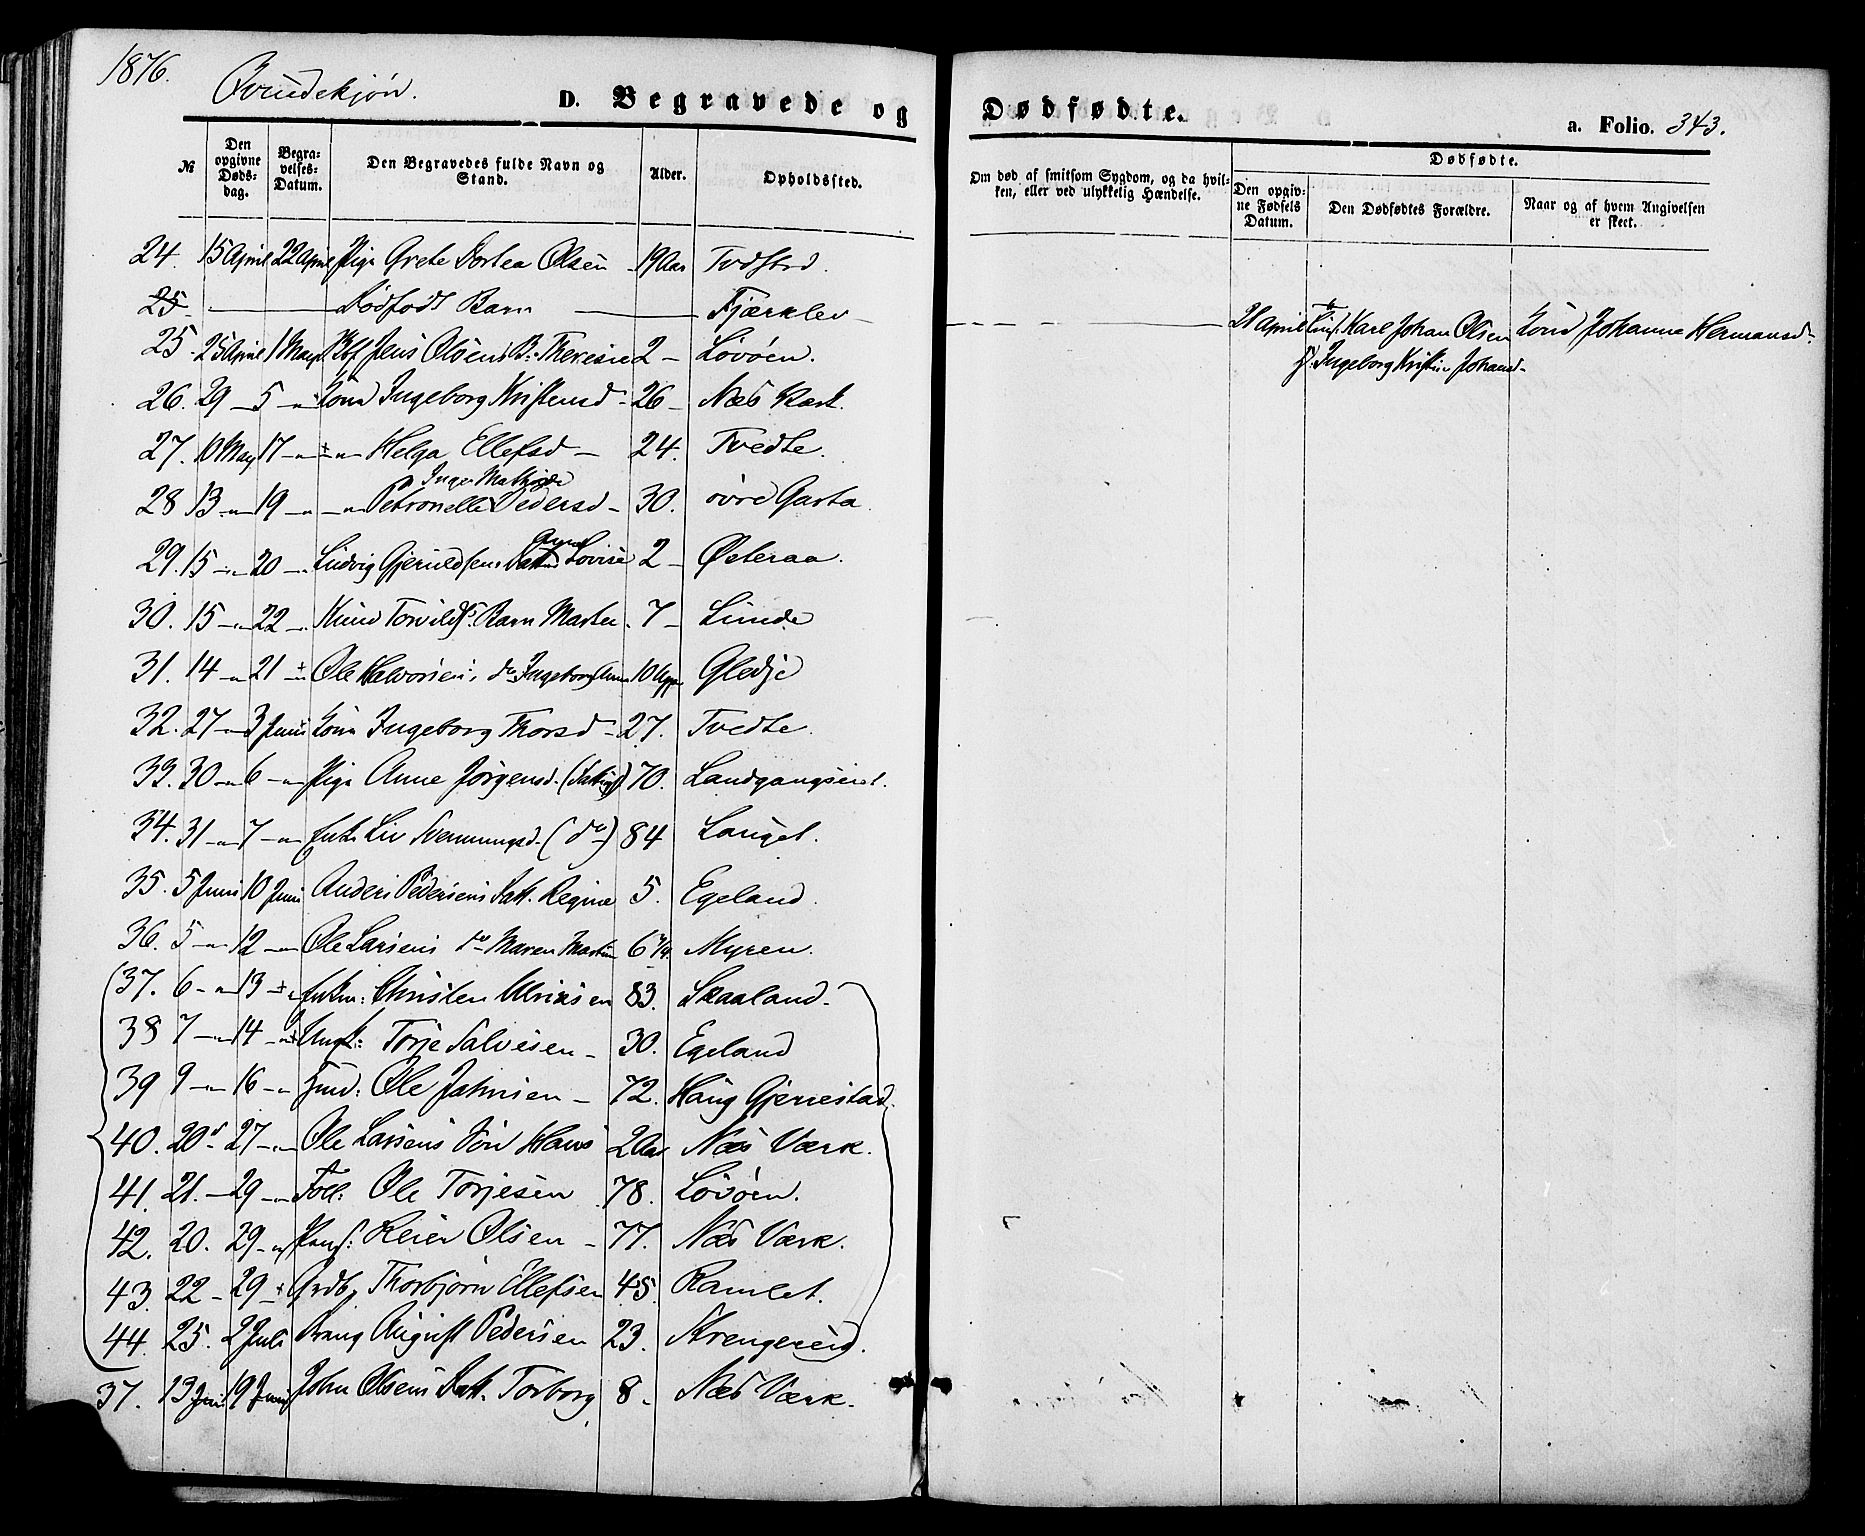 1876.
Qvindekjøn.
D. Begravede og
Dødfødte.
a. Folio. 343.
№
Den opgivne Døds-dag.
Begra-velses-Datum.
Den Begravedes fulde Navn og Stand.
Alder.
Opholdssted.
Om død af smitsom Sygdom, og da hvil-ken, eller ved ulykkelig Hændelse.
Dødfødte.
Den opgiv-ne Fødsels Datum.
Den Dødfødtes Forældre.
Naar og af hvem Angivelsen er skeet.
24. 15 April 22 April Pige Grete Dortea Olsen 19 Aar
25 Dødfødt Barn Fjærklev
21 April Karl Johan Olsen Kone Johanne Hermansd.
Ingeborg Kristine Johansd
25. 25 April 1 May Jens Olsens B. Theresie 2 Løvøen.
26. 29 5 Kone Ingeborg Kristensd 26 Næs Værk.
27. 10 May 17 Helga Ellefsd 24. Tvedte.
Inger Mathilde
28 13 19 Petronelle Pedersd 30. øvre Garta
29. 15 20 Ludvig Gjeruldsens Datt Lovise 2 Østeraa.
30. 15 22 Knud Torvilds. Barn Marten 7 Lunde
31. 14 21 Ole Halvorsens do Ingeborg Anne 10 Gledje
32. 27 3 Juni Kone Ingeborg Thorsd 27. Tvedte.
33. 30 6 Pige Anne Jørgensd. 70. Landgangseiet.
34. 31 7 Enk. Liv (do) 84 Langet.
35. 5 Juni 10 Juni Anders Pedersens Datt. Regine 5. Egeland.
36. 5 12 Ole Larsens do Maren 6 Myren.
37. 6 13 Enkm: Christen Ulriksen 83. Skaaland.
38 7 14 Ungk: Torje Salvesen 30. Egeland
39 9 16 Ole Jahnsen 72. Haug Gjerrestad.
40. 20 27 Ole Larsens Søn Hans 2 Aar Næs Værk.
41. 21. 29 Føll: Ole Torjesen 78. Løvøen.
42. 20. 29 Reier Olsen 77. Næs Værk.
43. 22 29 Thorbjørn Ellefsen 45. Ramlet.
44. 25. 2 Juli August Pedersen 23. Strengereid.
37. 13 Juni 19 Juni John Olsens Datt. Torborg 8 Næs Værk.